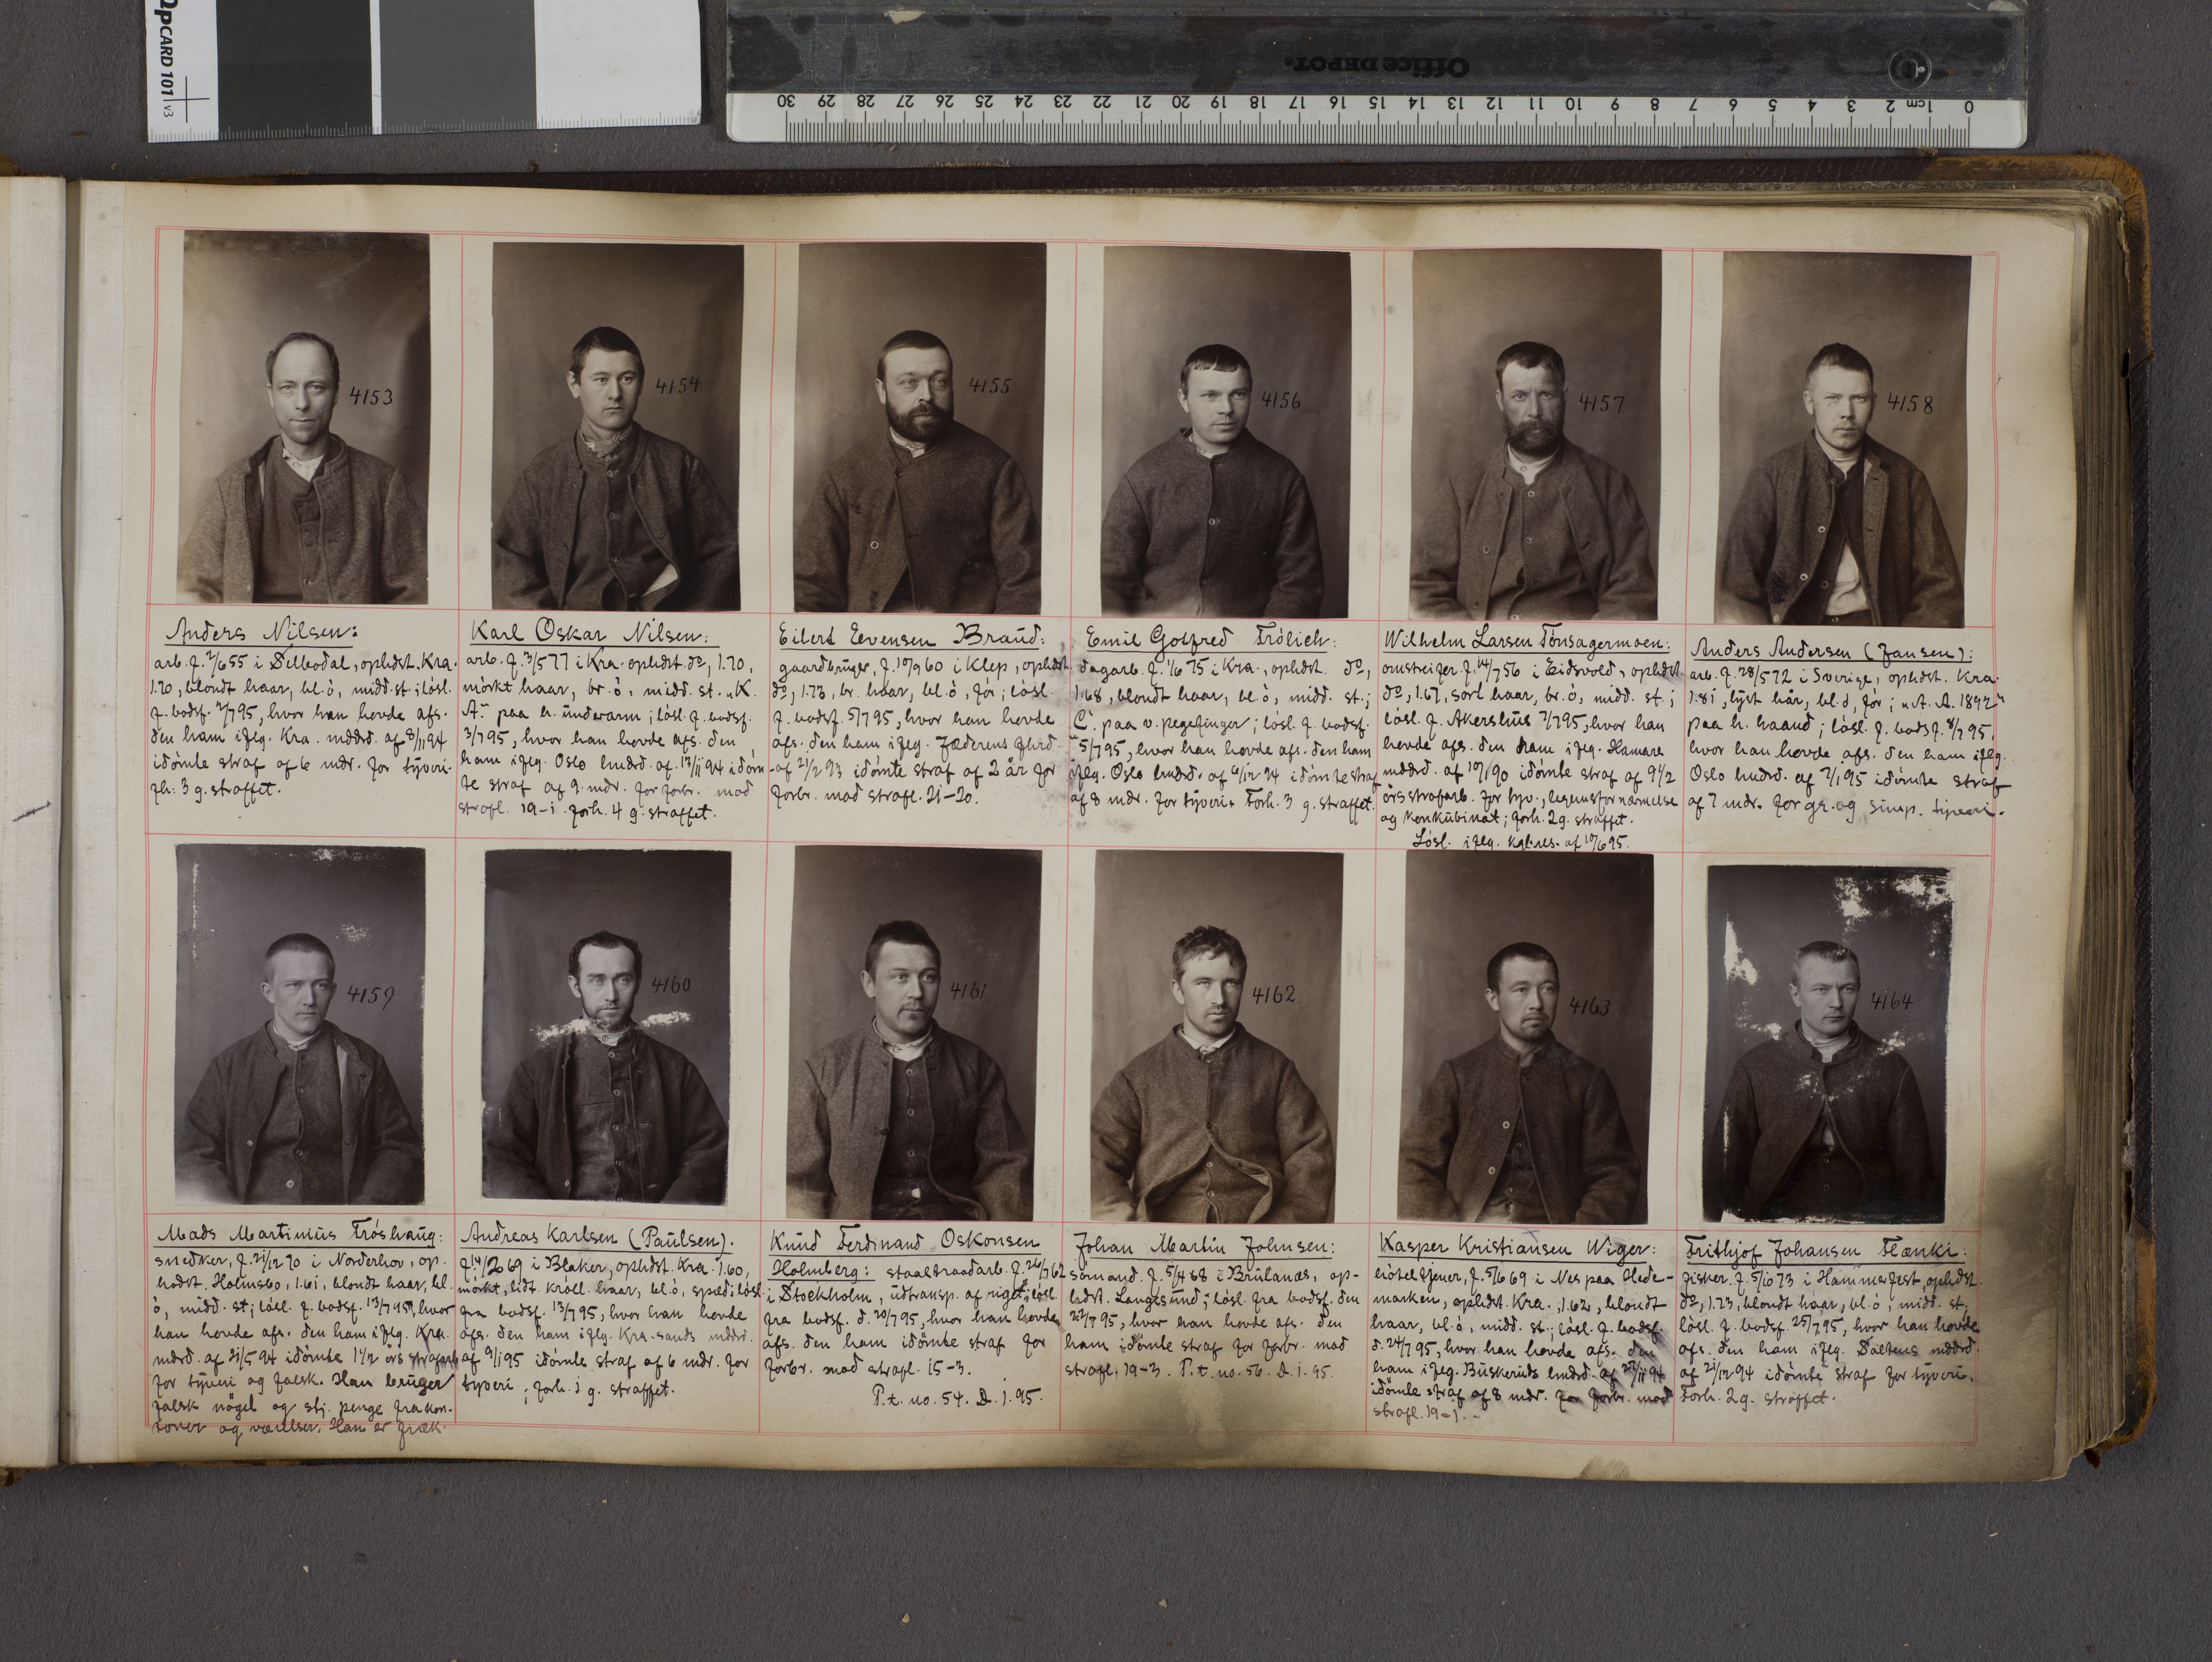 OpCARD 101 v3
Office DEPOT
30 29 28 27 26 25 24 23 22 21 20 19 18 17 16 15 14 13 12 11 10 9 8 7 6 5 4 3 2 1cm 0
4153
4154
4155
4156
4157
4158
Anders Nilsen:
arb. f. 2/6 55 i Silbodal, ophdst. Kra.
1.70, blondt haar, bl. ö, midd. st; lösl.
f. bodsf. 2/7 95, hvor han havde afs.
den ham iflg. Kra. mddrd. af 8/11 94
idömte straf af 6 mdr. for tyveri.
fh: 3 g. straffet.
Karl Oskar Nilsen:
arb. f. 3/5 77 i Kra. ophdst. do, 1.70,
mörkt haar, br. ö, midd. st. "K.
A." paa h. underarm; lösl. f. bodsf.
3/7 95, hvor han havde afs. den
ham iflg. Oslo lmdrd. af 13/11 94 idöm
te straf af 9 mdr. for forbr. mod
strafl. 19-1. forh. 4 g. straffet.
Eilert Evensen Braud:
gaardbruger, f. 10/9 60 i Klep, ophdst.
do, 1.73, br. haar, bl. ö, för; lösl.
f. bodsf. 5/7 95, hvor han havde
afs. den ham iflg. Jæderens fhrd.
af 21/2 93 idömte straf af 2 år for
forbr. mod strafl. 21-20.
Emil Gotfred Frölich:
dagarb. f. 1/6 75 i Kra., ophdst. do,
1.68, blondt haar, bl. ö, midd. st.;
C. paa v. pegefinger; lösl. f. bodsf.
5/7 95, hvor han havde afs. den ham
iflg. Oslo lmdrd. af 6/12 94 idömte straf
af 8 mdr. for tyveri. Forh. 3 g. straffet.
Wilhelm Larsen Tönsagermoen:
omstreifer f. 14/7 56 i Eidsvold, ophdst.
do, 1.67, sort haar, br. ö, midd. st.;
lösl. f. Akershus 7/7 95, hvor han
havde afs. den ham iflg. Hamars
mddrd. af 10/1 90 idömte straf af 9 1/2
örs strafarb. for tyv., legemsfornærmelse
og konkubinat; forh. 2 g. straffet.
Lösl. iflg. kgl. res. af 10/6 95.
Anders Andersen (Jansen):
arb. f. 28/5 72 i Sverige, ophdst. Kra.
1.81, lyst hår, bl. ö, för; "A. A. 1892"
paa h. haand; lösl. f. bodsf. 8/7 95,
hvor han havde afs. den ham iflg.
Oslo lmdrd. af 7/1 95 idömte straf
af 7 mdr. for gr. og simp. tyveri.
4159
4160
4161
4162
4163
4164
Mads Martinius Fröshaug:
snedker, f. 21/12 70 i Norderhov, op-
hadst. Holmsbo, 1.61, blondt haar, bl.
ö, midd. st; lösl. f. bodsf. 13/7 95, hvor
han havde afs. den ham iflg. Kra.
mdrd. af 21/5 94 idömte 1 1/2 örs strafarb
for tyveri og falsk. Han bruger
falsk nögel og stj. penge fra kon-
torer og værelser. Han er fræk.
Andreas Karlsen (Paulsen).
f. 14/2 69 i Blaker, ophdst. Kra. 1.60,
mörkt, lidt kröll. haar, bl. ö, spæd; lösl.
fra bodsf. 13/7 95, hvor han havde
afs. den ham iflg. Kra.sands mddrd.
af 9/1 95 idömte straf af 6 mdr. for
tyveri; forh. 1 g. straffet.
Knud Ferdinand Oskonsen
Holmberg: staaltraadarb. f. 26/7 62
i Stockholm, udtransp. af riget; lösl.
fra bodsf. d. 20/7 95, hvor han havde
afs. den ham idömte straf for
forbr. mod strafl. 15-3.
P.t. no. 54. D. 1. 95.
Johan Martin Johnsen:
sömand. f. 5/4 68 i Brulanæs, op-
hdst. Langesund; lösl. fra bodsf. den
22/7 95, hvor han havde afs. den
ham idömte straf for forbr. mod
strafl. 19-3. P.t. no. 56. D. 1. 95.
Kasper Kristiansen Wiger:
hóteltjener, f. 5/6 69 i Nes paa Hede-
marken, ophdst. Kra., 1.62, blondt
haar, bl. ö, midd. st.; lösl. f. bodsf.
d. 24/7 95, hvor han havde afs. den
ham iflg. Buskeruds lmdrd. af 27/11 94
idömte straf af 8 mdr. for forbr. mod
strafl. 19-1.
Frithjof Johansen Flænki:
fisker. f. 5/10 73 i Hammerfest, ophdst.
do, 1.73, blondt haar, bl. ö, midd. st.
lösl. f. bodsf. 25/7 95, hvor han havde
afs. den ham iflg. Saltens mddrd.
af 21/12 94 idömte straf for tyveri.
Forh. 2 g. straffet.